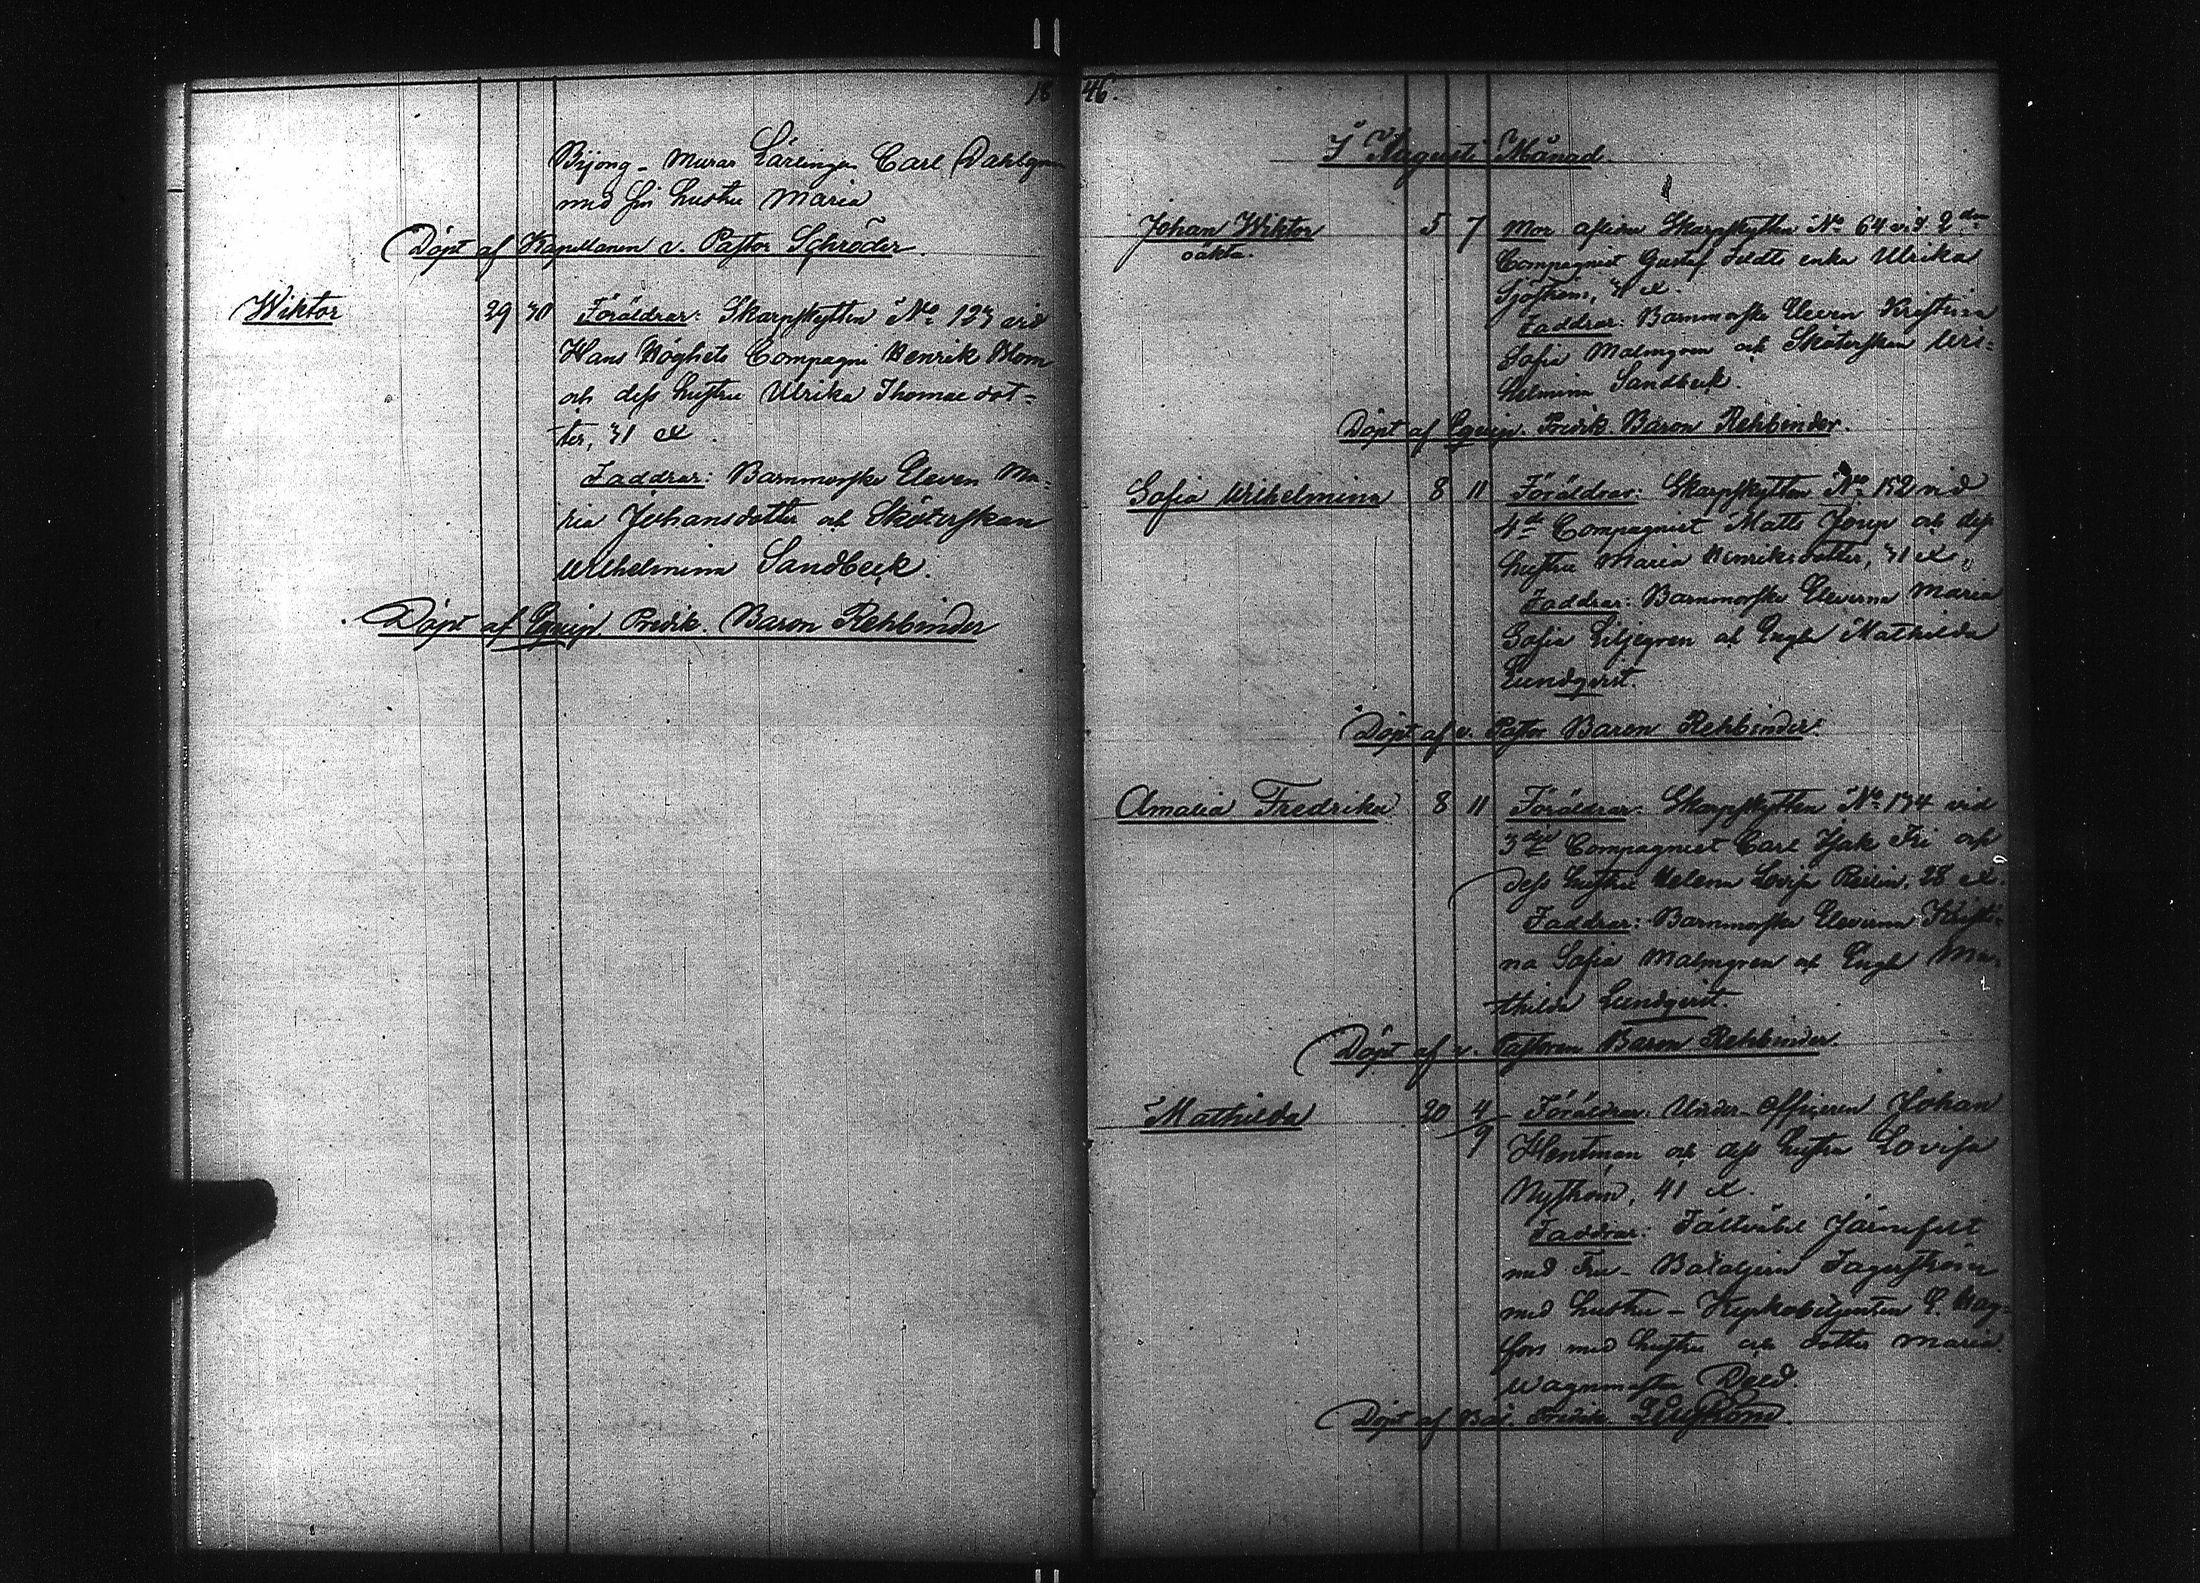 1846.
Murar Lärlingen Carl Dahlgren
med sin hustru Maria
Döpt af Kapellanen v. Pastor Schröder.
Wiktor 29 30 Föräldrar: Skarpskytten No 123 vid
Hans Höghets Compagni Henrik Blom
och dess hustru Ulrika Thomasdot=
ter, 31 år.
Faddrar: Barnmorske Eleven Ma=
ria Johansdotter och Sköterskan
Wilhelmina Sandbeck.
Döpt af Equip. Predik. Baron Rehbinder
I Augusti Månad.
Johan Wiktor 5 7 Mor aflidne Skarpskytten No 64 vid 2dra
oäkta.
Compagniet Gustaf Feldts enka Ulrika
Sjöström, 31 år.
Faddrar: Barnmorske Eleven Kristina
Sofia Malmgren och Sköterskan Wil=
helmina Sandbeck.
Döpt af Equip. Predik. Baron Rehbinder.
Sofia Wilhelmina 8 11 Föräldrar: Skarpskytten No 152 vid
4de Compagniet Matts Jorup och dess
hustru Maria Henriksdotter, 31 år.
Faddrar: Barnmorske Eleverna Maria
Sofia Liljegren och Engla Mathilda
Lundqvist.
Döpt af v. Pastor Baron Rehbinder.
Amalia Fredrika 8 11 Föräldrar: Skarpskytten No 134 vid
3dje Compagniet Carl Isak Fri och
dess hustru Helena Lovisa 28 år.
Faddrar: Barnmorske Eleverna Kristi=
na Sofia Malmgren och Engla Ma=
thilda Lundqvist.
Döpt af v. Pastoren Baron Rehbinder.
Mathilda 20 4/9 Föräldrar: Under-Officeren Johan
Hentman och dess hustru Lovisa
Nyström, 41 år.
Faddrar: Fältväbel Järnefelt
med Fru - Fagerström
med hustru -
fors med hustru och dotter Maria.
Döpt af Bat. Predik.